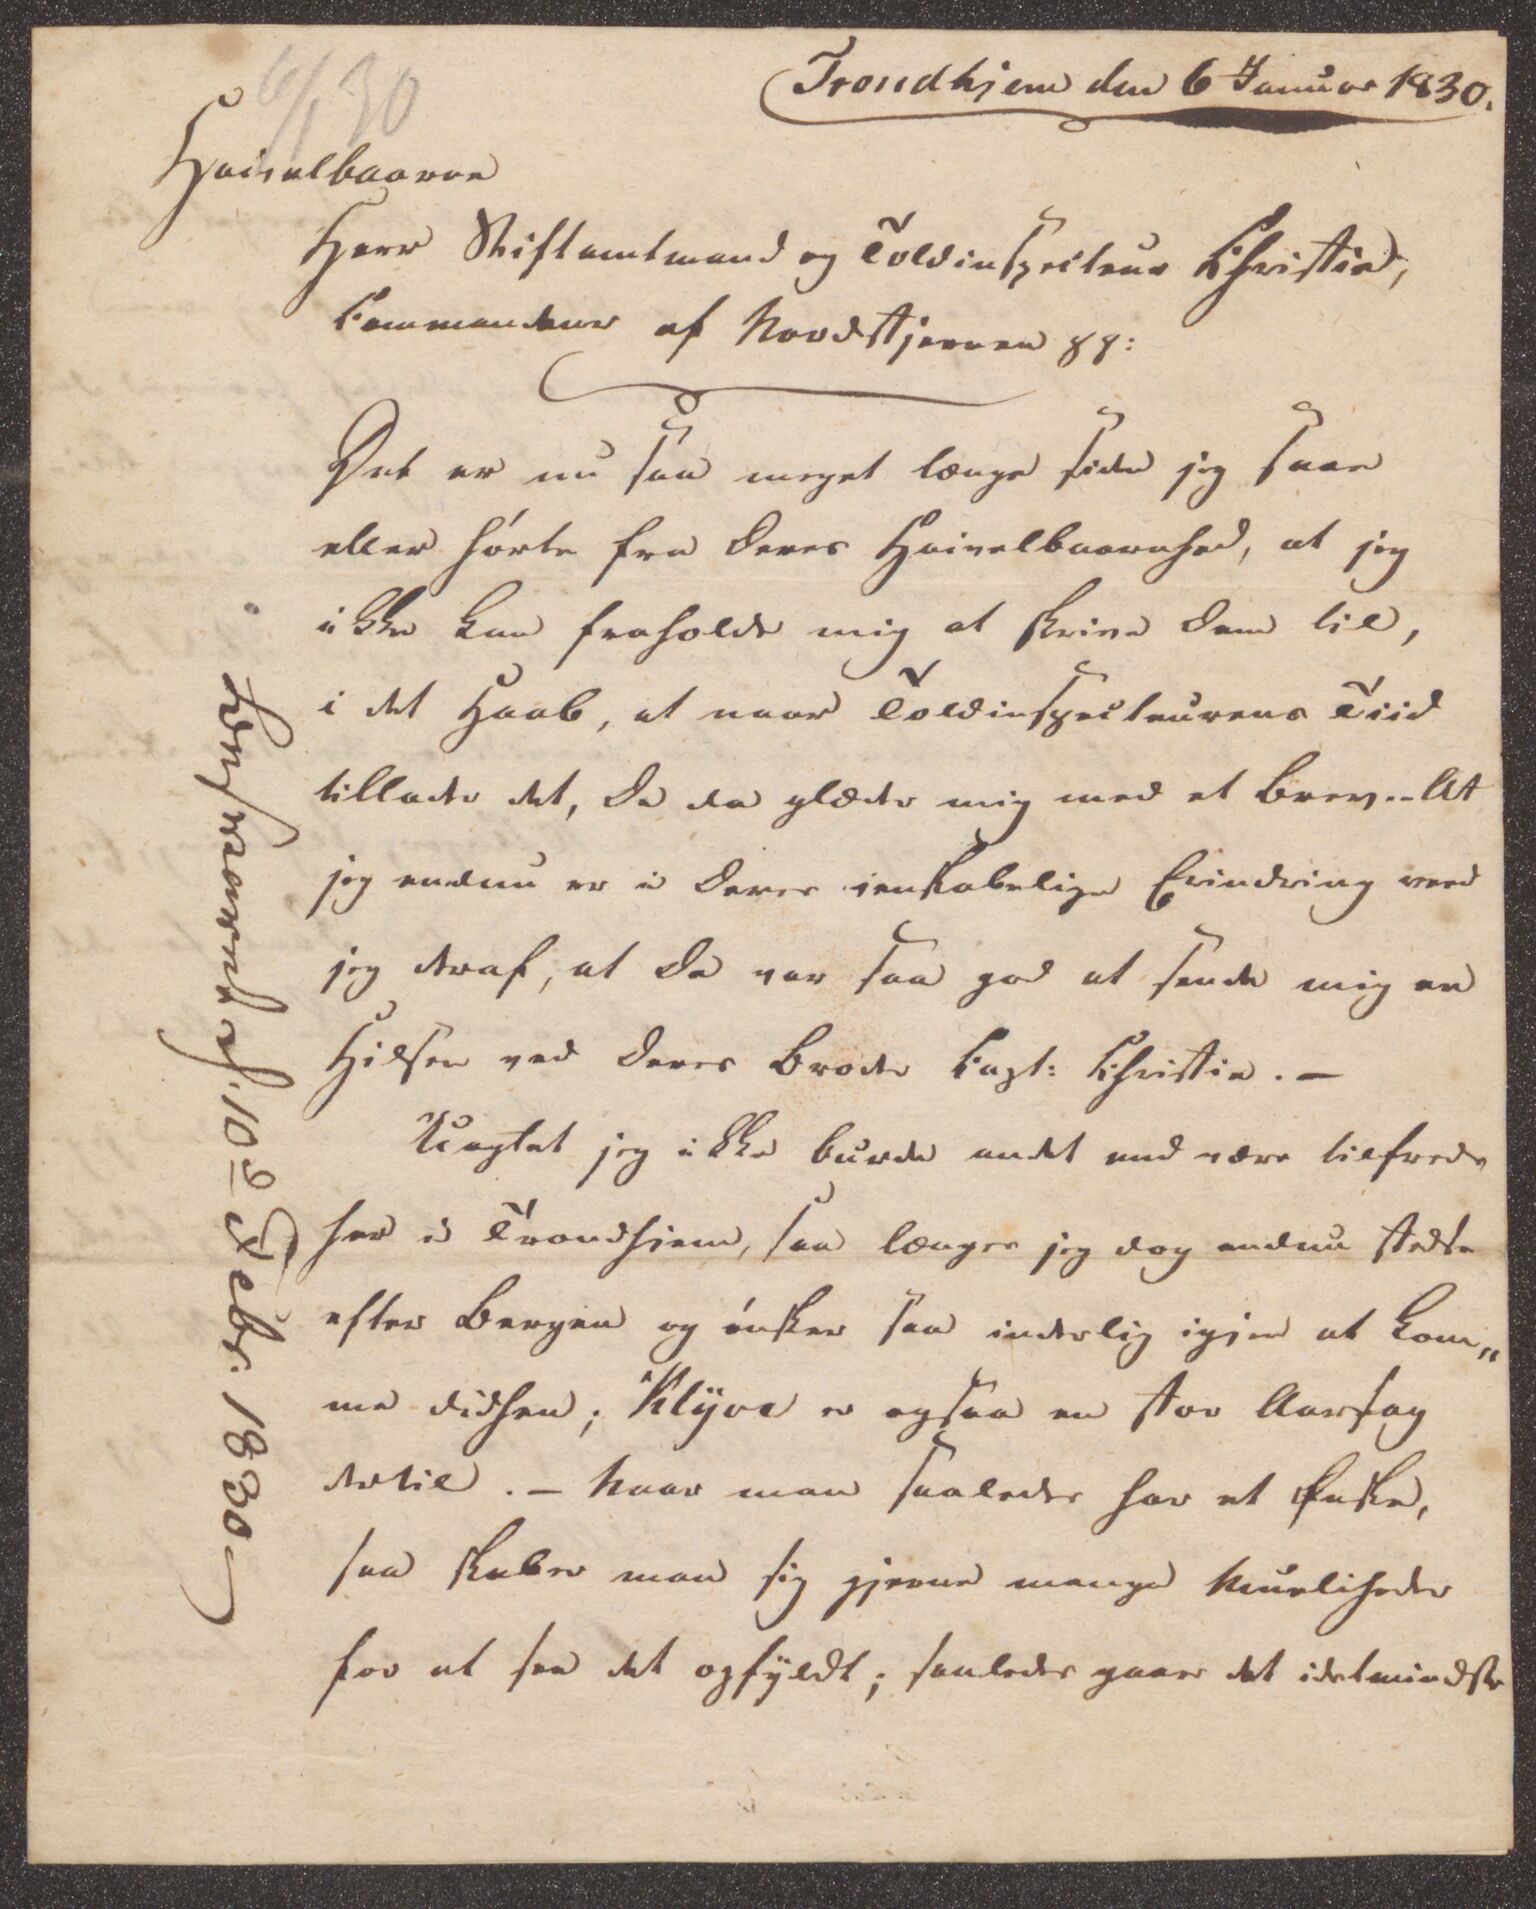 6/1 30
Trondhjem den 6 Januar 1830.
Høivelbaarne
Herr Stiftamtmand og Toldinspecteur Christie,
Commandeur af Nordstjernen pp:
Det er nu saa meget længe siden jeg saae
eller hørte fra Deres Høivelbaarnhed, at jeg
ikke kan fraholde mig at skrive Dem til,
i det Haab, at naar Toldinspecteurens Tiid
tillader det, De da glæder mig med et Brev. - At
jeg endnu er i Deres venskabelige Erindring veed
jeg deraf, at De var saa god at sende mig en
Hilsen ved Deres Broder Capt: Christie. -
Uagtet jeg ikke burde andet end være tilfreds
her i Trondhjem, saa længes jeg dog endnu stedse
efter Bergen og ønsker saa inderlig igjen at kom„
me didhen; Klÿve er ogsaa en stor Aarsag
dertil. - Naar man saaledes har et Ønske,
saa skaber man sig gjerne mange Mueligheder
for at see det opfÿldt; saaledes gaaer det idetmindste
besvaret d. 10d Febr. 1830